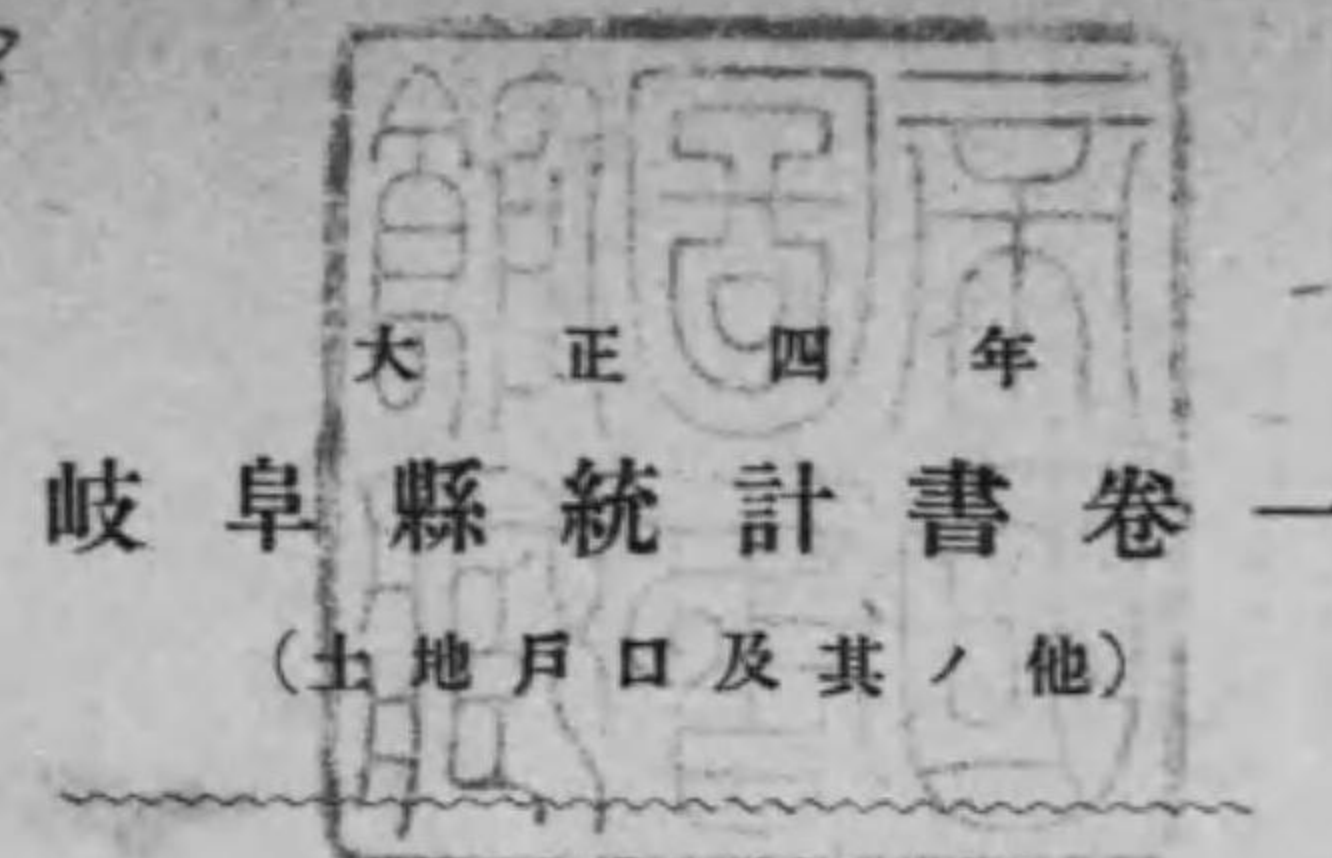 大正四年
岐阜縣統計書卷一
(土地戸口及其ノ他)